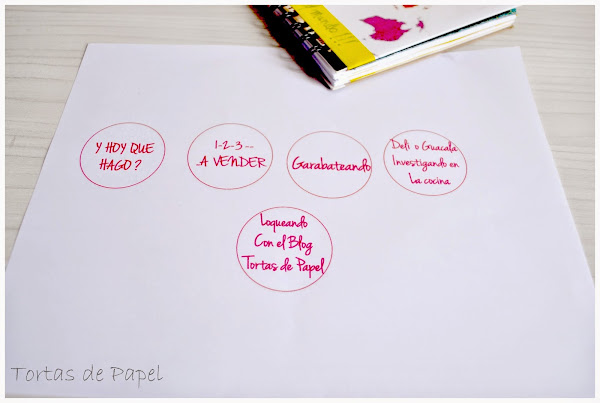 mundo!!!
Y HOY QUE
HAGO?
1-2-3--
.A VENDER
Garabateando
Deli o Guacala
Investigando en
La cocina
Loqueando
Con el Blog
Tortas de Papel
Tortas de Papel